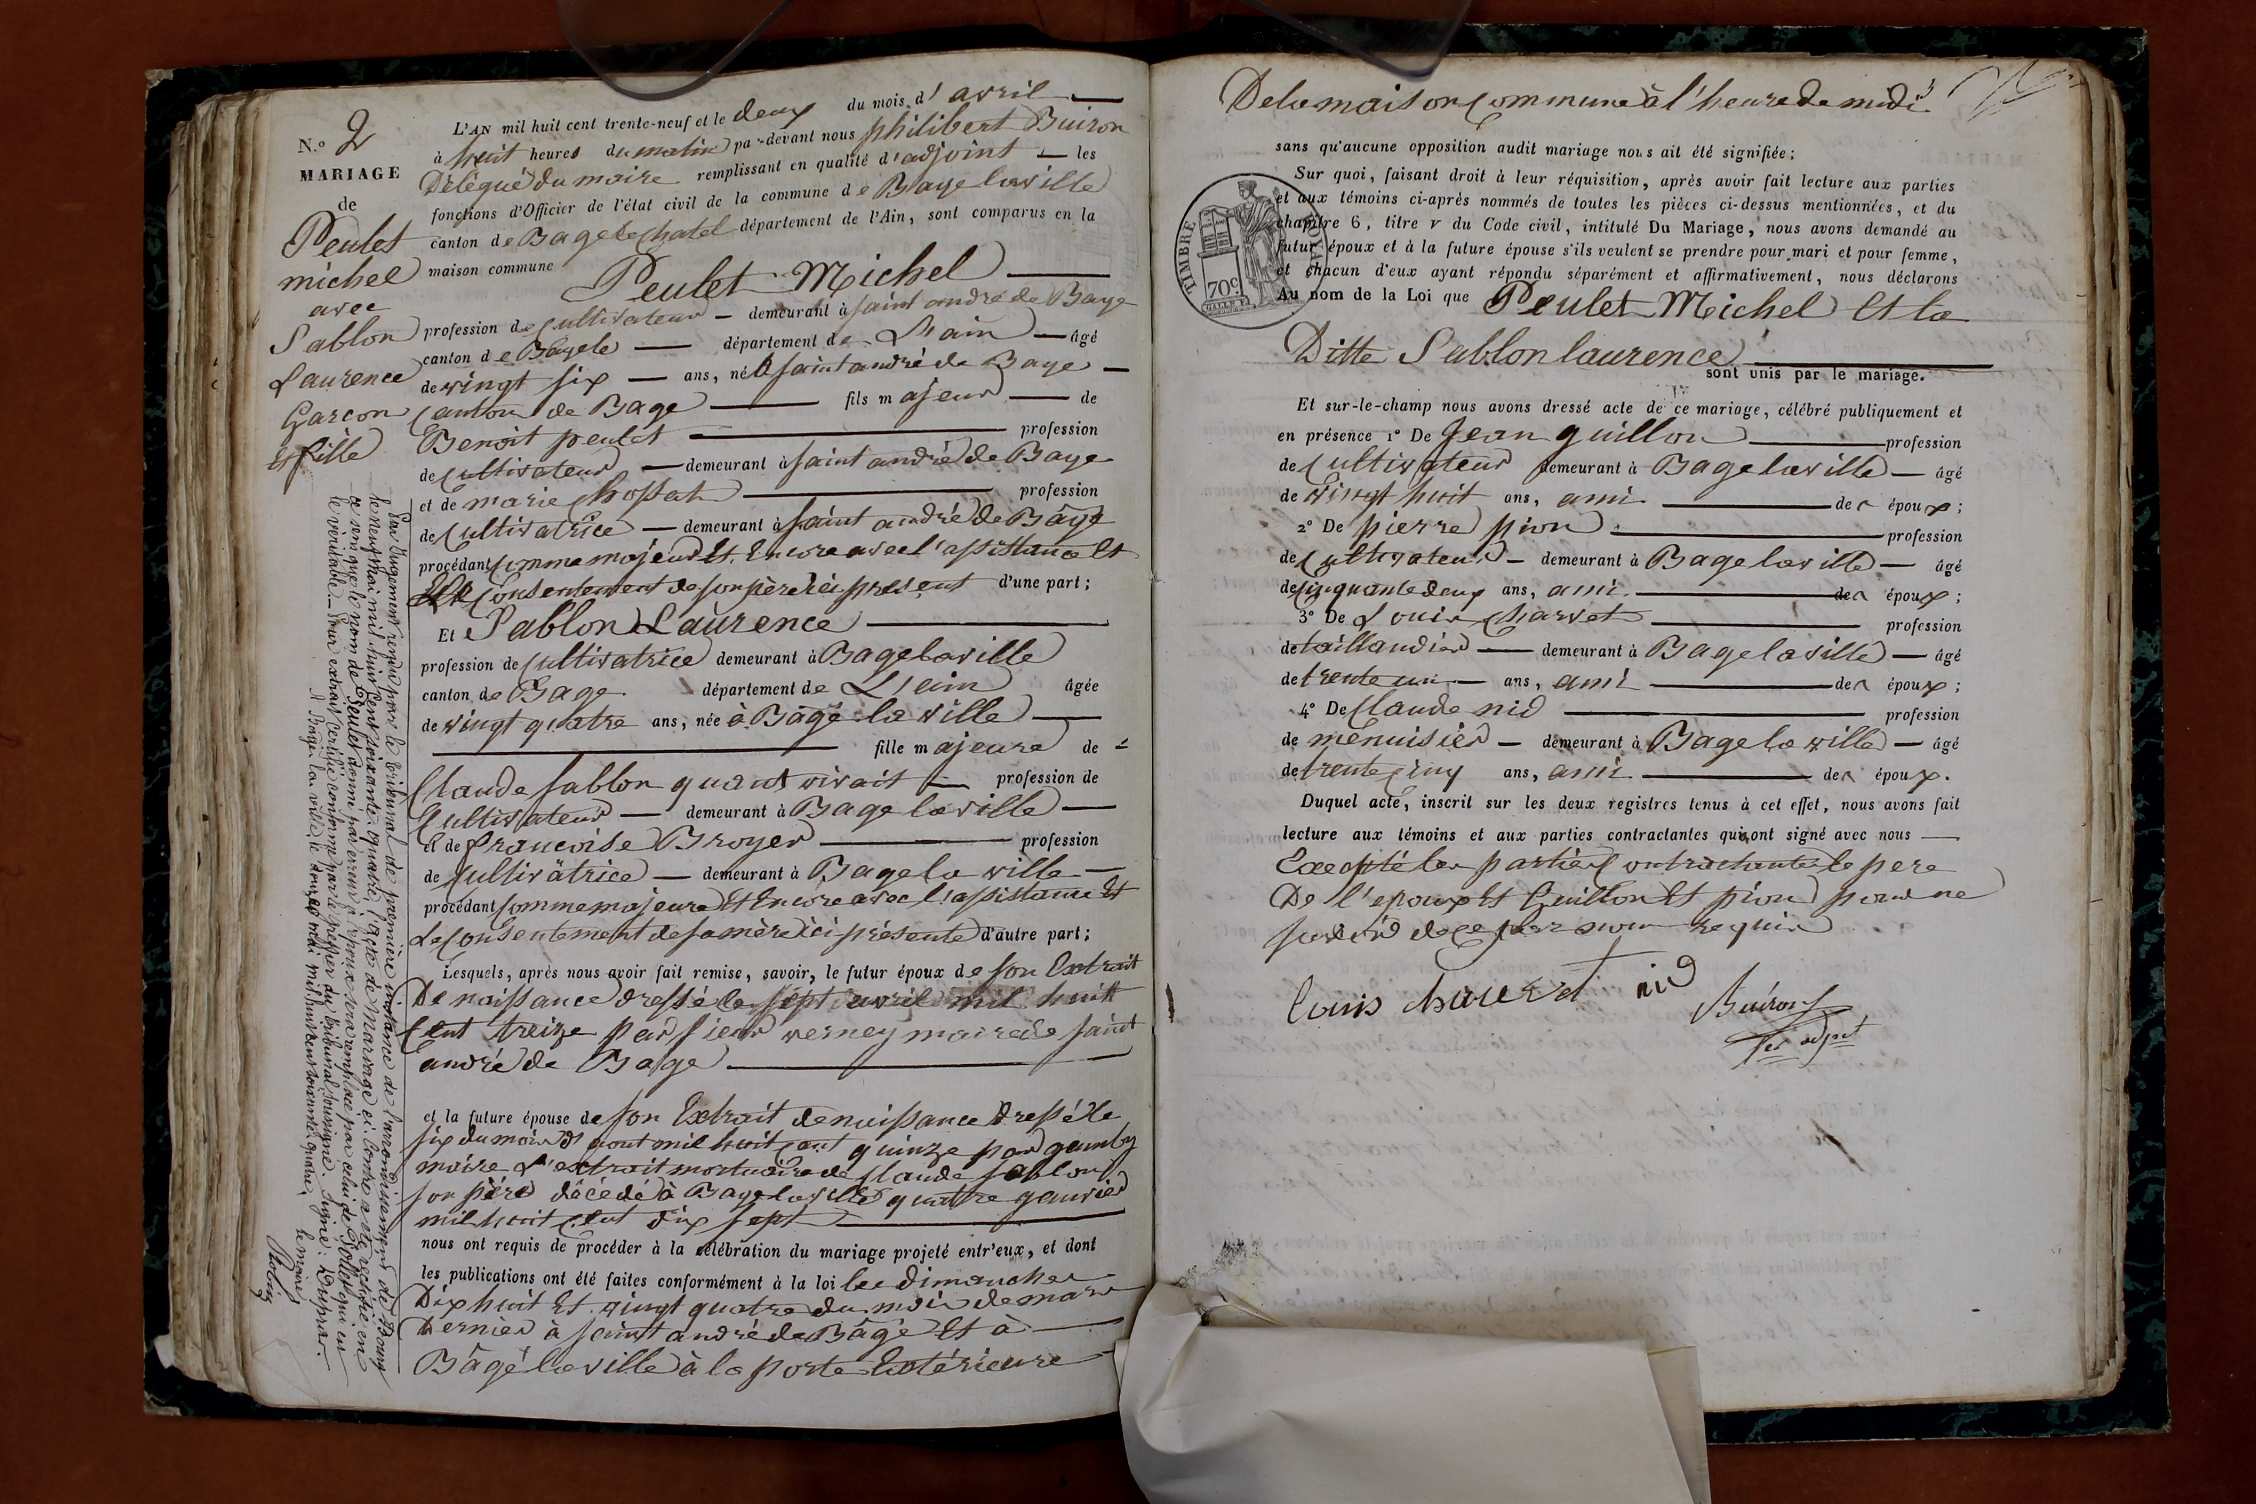 N.º 2
MARIAGE
de
Peulet
michel
avec
Sablon
Laurence
Garcon
et fille
L'AN mil huit cent trente-neuf et le deux du mois d'avril
à huit heures du matin par-devant nous philibert Buiron
Délégué du maire remplissant en qualité d'adjoint les
fonctions d'Officier de l'état civil de la commune de Bage laville
canton de Bage le Chatel département de l'Ain, sont comparus en la
maison commune Peulet Michel
profession de Cultivateur demeurant à saint andré de Bage
canton de Bage le département de Lain âgé
de vingt six ans, né à saint andré de Bage
Canton de Bage fils majeur de
Benoit peulet profession
de Cultivateur demeurant à saint andré de Bage
et de marie Chossat profession
de Cultivatrice demeurant à saint andré de Bâgé
procédant Comme majeur Et Encore avec l'assistance Et
le Consentement de son père ici present d'une part;
Et Sablon Laurence
profession de Cultivatrice demeurant à Bage laville
canton de Bage département de L'ein âgée
de vingt quatre ans, née à Bâgé la ville
fille majeure de
Claude Sablon quand vivait profession de
Cultivateur demeurant à Bage laville
et de francoise Broyer profession
de Cultivatrice demeurant à Bage la ville
procédant Comme majeure Et Encore avec l'assistance Et
Le Consentement de sa mère ici présente d'autre part;
Lesquels, après nous avoir fait remise, savoir, le futur époux de son Extrait
De naissance dressé le sept avril mil huit
Cent treize par sieur verney maire de saint
andré de Bage
et la future épouse de son Extrait de naissance Dressé le
six du mois d'aout mil huit cent quinze par
maire L'extrait mortuaire de Claude Sablon
son père décédé à Bage laville quatre janvier
mil huit Cent dix sept
nous ont requis de procéder à la célébration du mariage projeté entr'eux, et dont
les publications ont été faites conformément à la loi les dimanches
Dix huit Et vingt quatre du mois de mars
Dernier à saint andré de Bâgé Et à
Bâgé laville à la porte Extérieure
Par Jugement rendu par le tribunal de première instance de l'arrondissement de Bourg
le neuf mai mil huit cent soixante-quatre, l'acte de Mariage ci-contre a été rectifié en
ce sens que le nom de Peulet donné par erreur à l'époux sera remplacé par celui de Pollet qui est
le véritable. - Pour extrait certifié conforme par le greffier du tribunal soussigné. Signé:
A Bâgé-la-ville, le douze mai mil huit cent soixante-quatre.
le maire,
De la maison Commune à l'heure de midi
sans qu'aucune opposition audit mariage nous ait été signifiée;
Sur quoi, faisant droit à leur réquisition, après avoir fait lecture aux parties
et aux témoins ci-après nommés de toutes les pièces ci-dessus mentionnées, et du
chapitre 6, titre v du Code civil, intitulé Du Mariage, nous avons demandé au
futur époux et à la future épouse s'ils veulent se prendre pour mari et pour femme,
et chacun d'eux ayant répondu séparément et affirmativement, nous déclarons
Au nom de la Loi que Peulet Michel Et la
TIMBRE ROYAL
70c.
Ditte Sablon laurence
sont unis par le mariage.
Et sur-le-champ nous avons dressé acte de ce mariage, célébré publiquement et
en présence 1º De Jean guillon profession
de Cultivateur demeurant à Bage laville âgé
de vingt huit ans, ami des époux;
2º De pierre pion profession
de Cultivateur demeurant à Bage laville âgé
de Cinquante deux ans, ami des époux;
3º De Louis Charvet profession
de taillandier demeurant à Bage laville âgé
de trente un ans, ami des époux;
4º De Claude nid profession
de menuisier demeurant à Bage la ville âgé
de trente cinq ans, ami des époux.
Duquel acte, inscrit sur les deux registres tenus à cet effet, nous avons fait
lecture aux témoins et aux parties contractantes qui ont signé avec nous
Excepté les parties Contractantes le pere
De l'epoux Et Guillon Et pion pour ne
savoir de ce par nous requis
Louis charvet nid
Buiron
adjnt